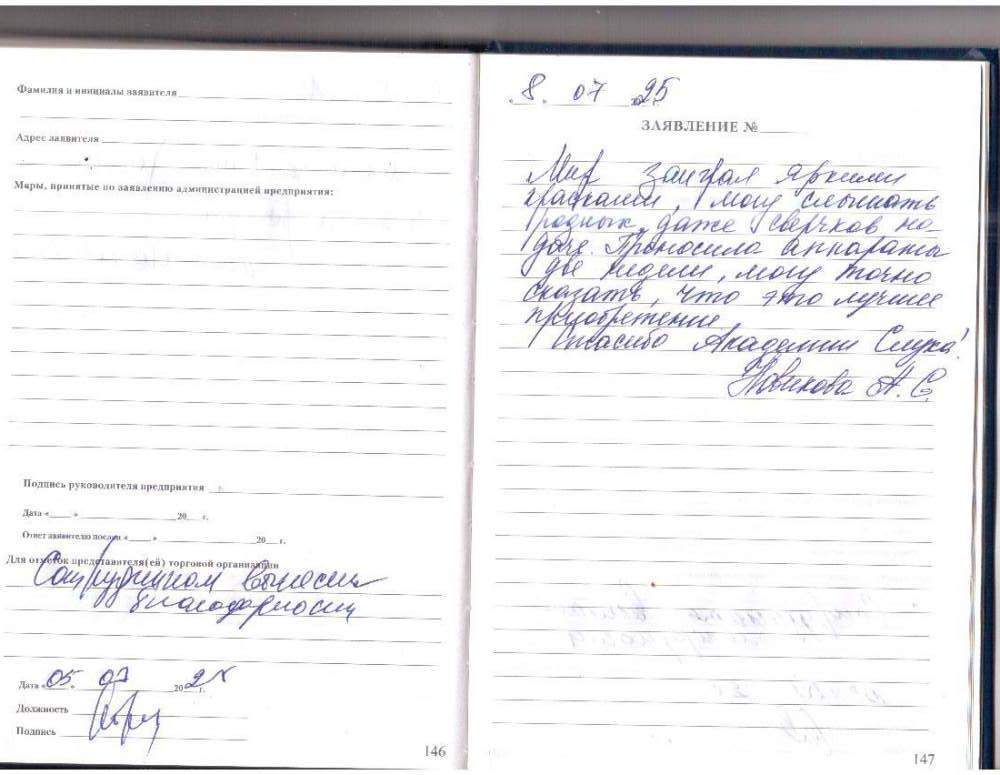 Фамилия и инициалы заявителя
Адрес заявителя
Меры, принятые по заявлению администрацией предприятия:
Подпись руководителя предприятия
Дата « » 20 г.
Ответ заявителю послан « » 20 г.
Для отметок представителя(ей) торговой организации
Сотрудникам выносим
благодарность
Дата « 05 » 07 2025 г.
Должность
Подпись
146
8. 07 25
ЗАЯВЛЕНИЕ №
Мир заиграл яркими
красками, могу слышать
родных, даже сверчков на
даче. Проносила аппараты
две недели, могу точно
сказать, что это лучшее
приобретение.
Спасибо Академии Слуха!
Новикова А. С.
147